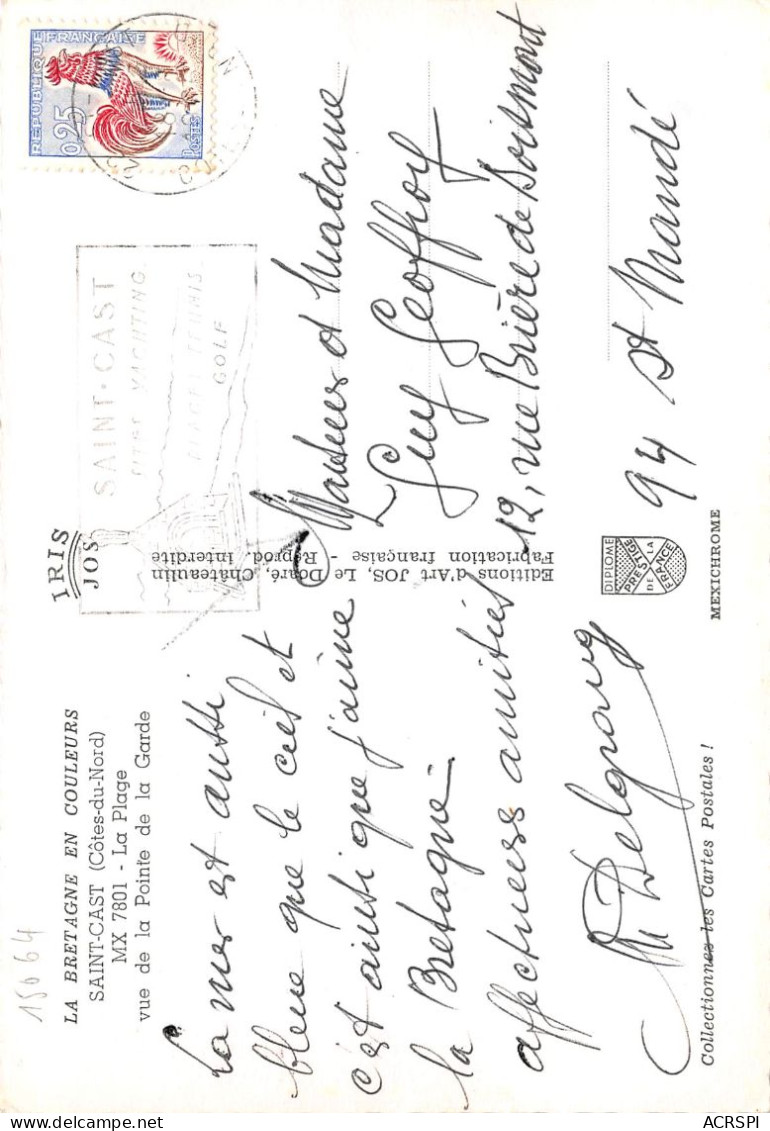 15064
LA BRETAGNE EN COULEURS
SAINT-CAST (Côtes-du-Nord)
MX 7801 - La Plage
vue de la Pointe de la Garde
La mer est aussi
bleue que le ciel et
c'est ainsi que j'aime
la Bretagne -
affectueuses amitiés
Collectionnez les Cartes Postales !
IRIS
JOS
Editions d'Art JOS, Le Doaré, Châteaulin
Fabrication française - Reprod. Interdite
DIPLOME
PRESTIGE
DE LA
FRANCE
MEXICHROME
REPUBLIQUE FRANÇAISE
0,25
POSTES
SAINT-CAST
YACHTING
TENNIS
GOLF
Monsieur et Madame
Guy Geoffroy
12, rue Brière de Boismont
94 St Mandé
ACRSPI